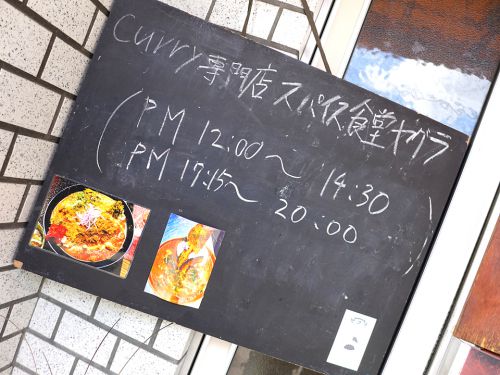 curry専門店 スパイス食堂ヤグラ
PM 12:00〜 14:30
PM 17:15〜 20:00